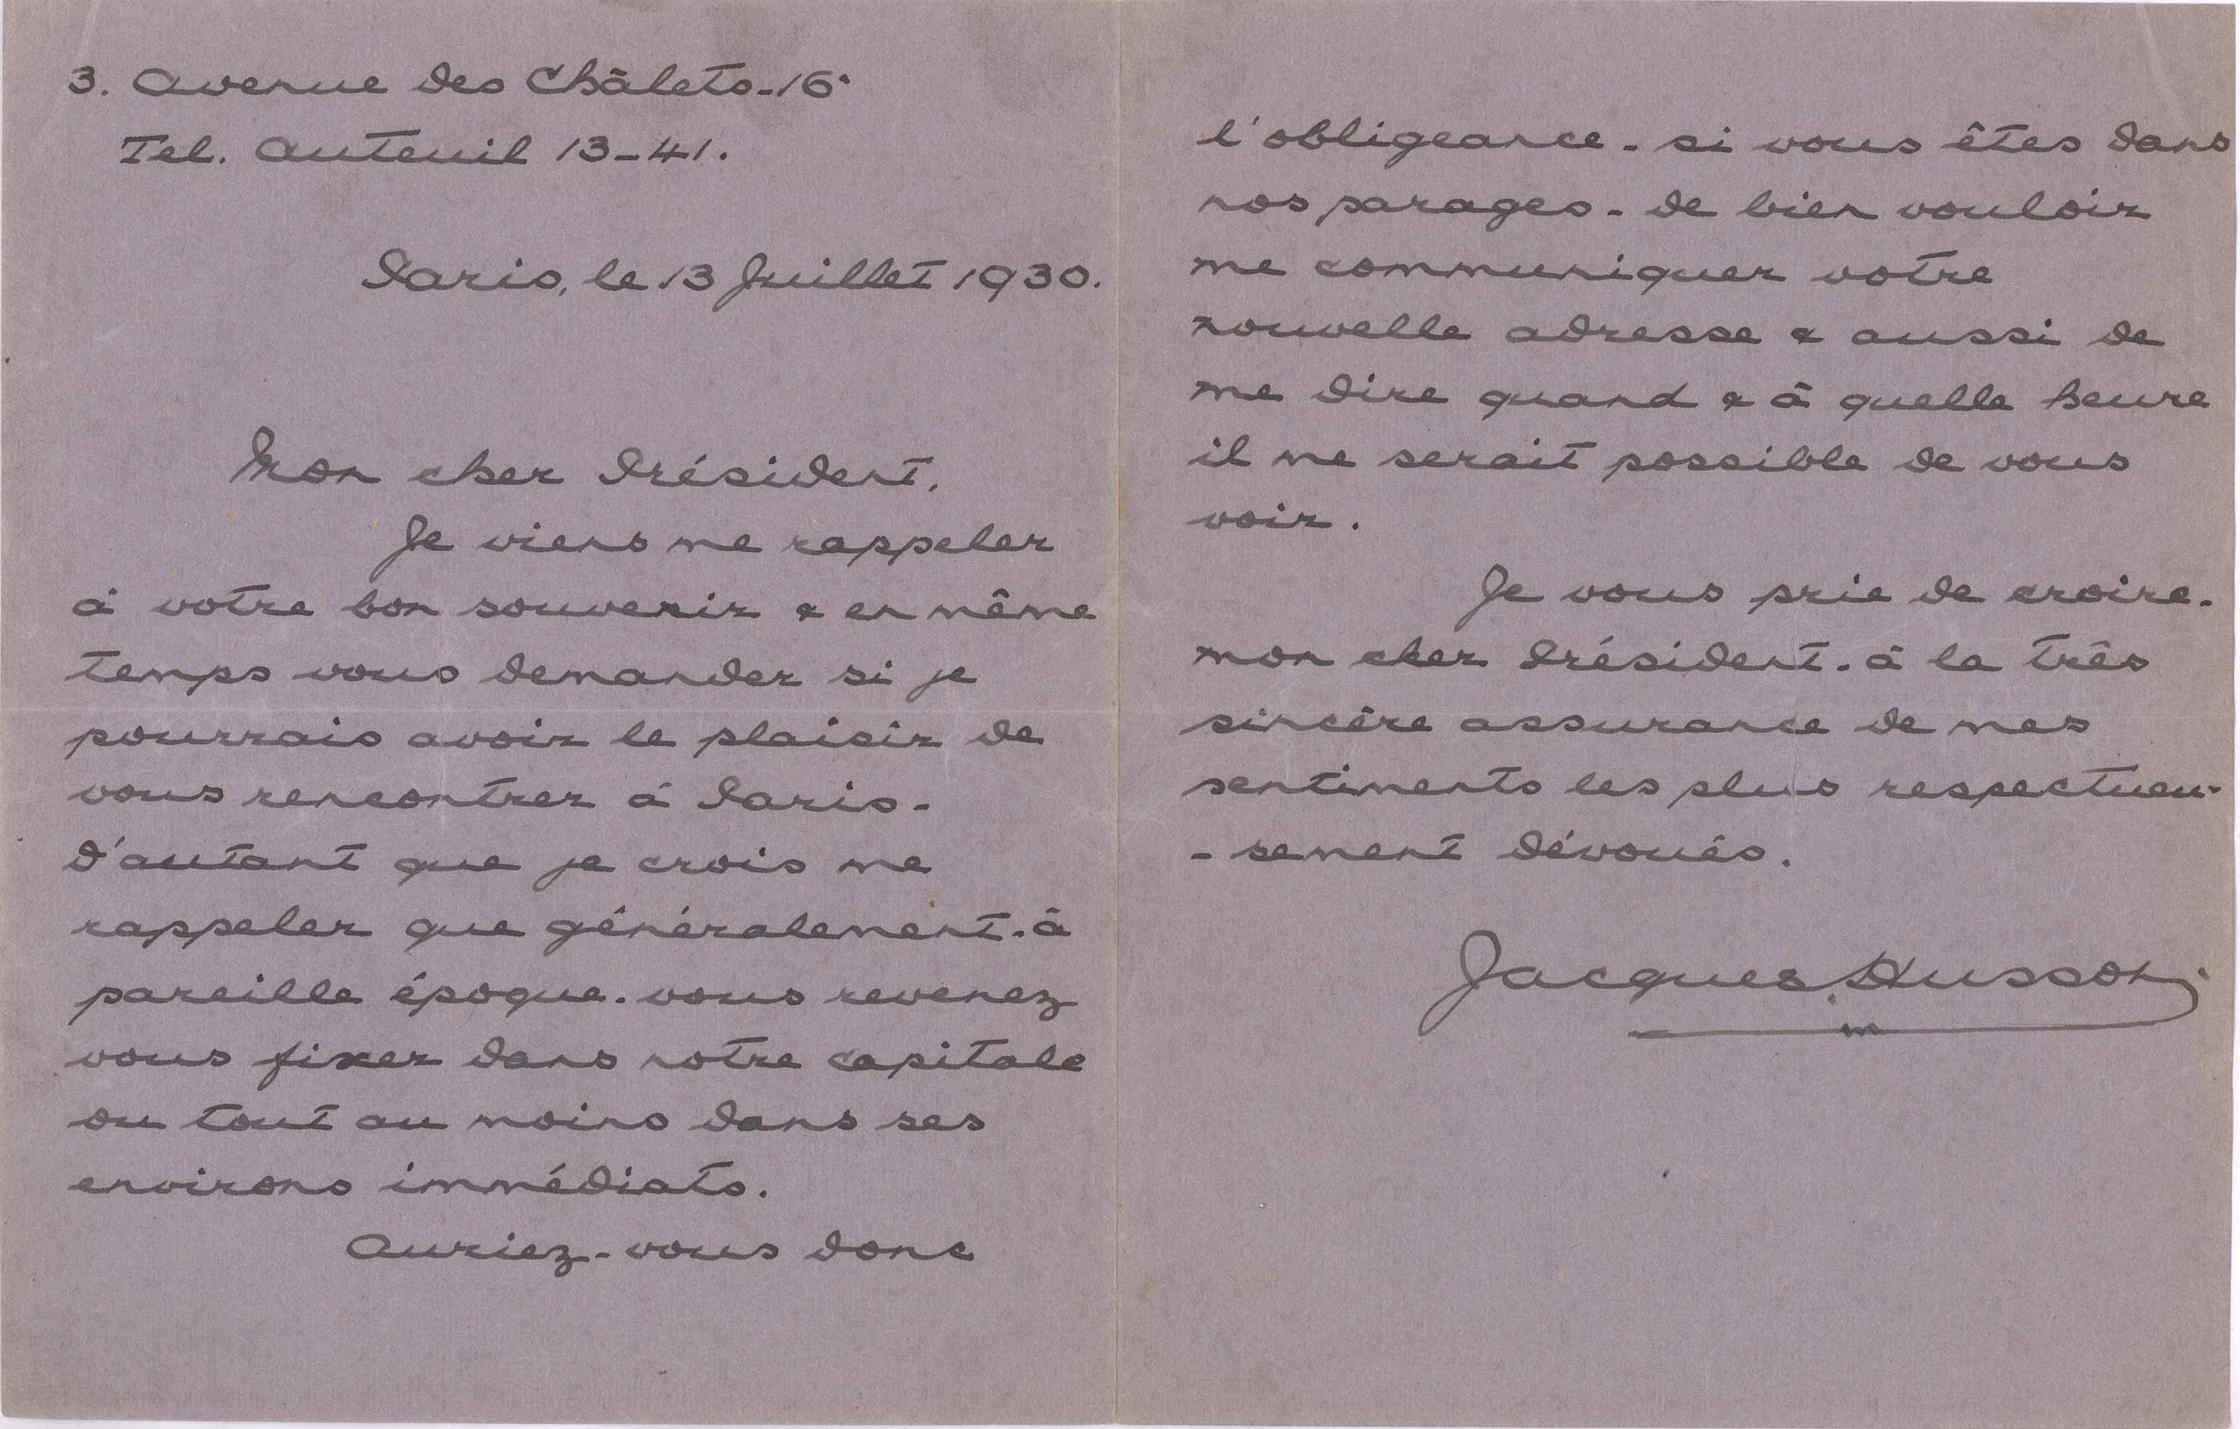 3. Avenue des Châlets-16e
Tel. Auteuil 13-41.
Paris, le 13 Juillet 1930.
Mon cher Président,
Je viens me rappeler
à votre bon souvenir & en même
temps vous demander si je
pourrais avoir le plaisir de
vous rencontrer à Paris-
d'autant que je crois me
rappeler que généralement-à
pareille époque-vous revenez
vous fixer dans notre capitale
ou tout au moins dans ses
environs immédiats.
Auriez-vous donc
l'obligeance-si vous êtes dans
nos parages-de bien vouloir
me communiquer votre
nouvelle adresse & aussi de
me dire quand & à quelle heure
il me serait possible de vous
voir.
Je vous prie de croire-
mon cher Président-à la très
sincère assurance de mes
sentiments les plus respectueu-
-sement dévoués.
Jacques Husson